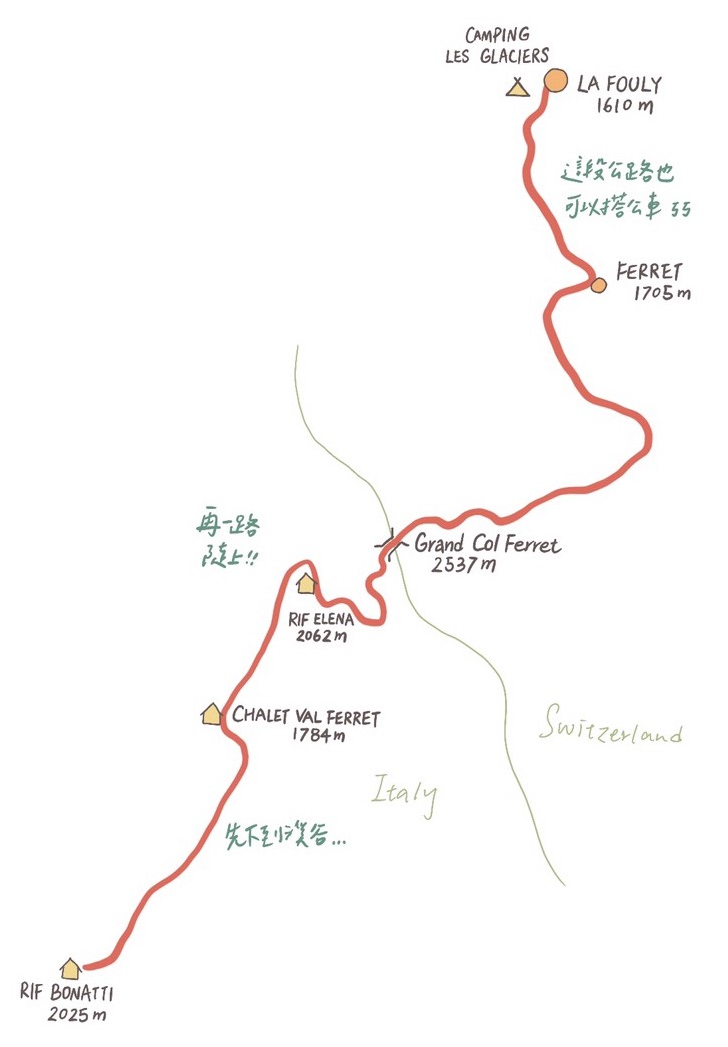 CAMPING
LES GLACIERS
LA FOULY
1610 m
這段公路也
可以搭公車
FERRET
1705 m
再一路
陡上!!
Grand Col Ferret
2537 m
RIF ELENA
2062 m
CHALET VAL FERRET
1784 m
Switzerland
Italy
先下到溪谷...
RIF BONATTI
2025 m